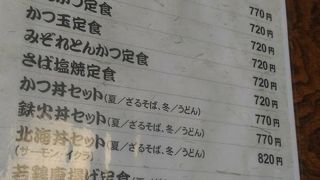 かつ定食 770円
かつ玉定食 720円
みぞれとんかつ定食 720円
さば塩焼定食 720円
かつ丼セット(夏/ざるそば、冬/うどん) 720円
鉄火丼セット(夏/ざるそば、冬/うどん) 770円
北海丼セット(夏/ざるそば、冬/うどん) 770円
(サーモン/イクラ) 820円
若鶏唐揚げ定食